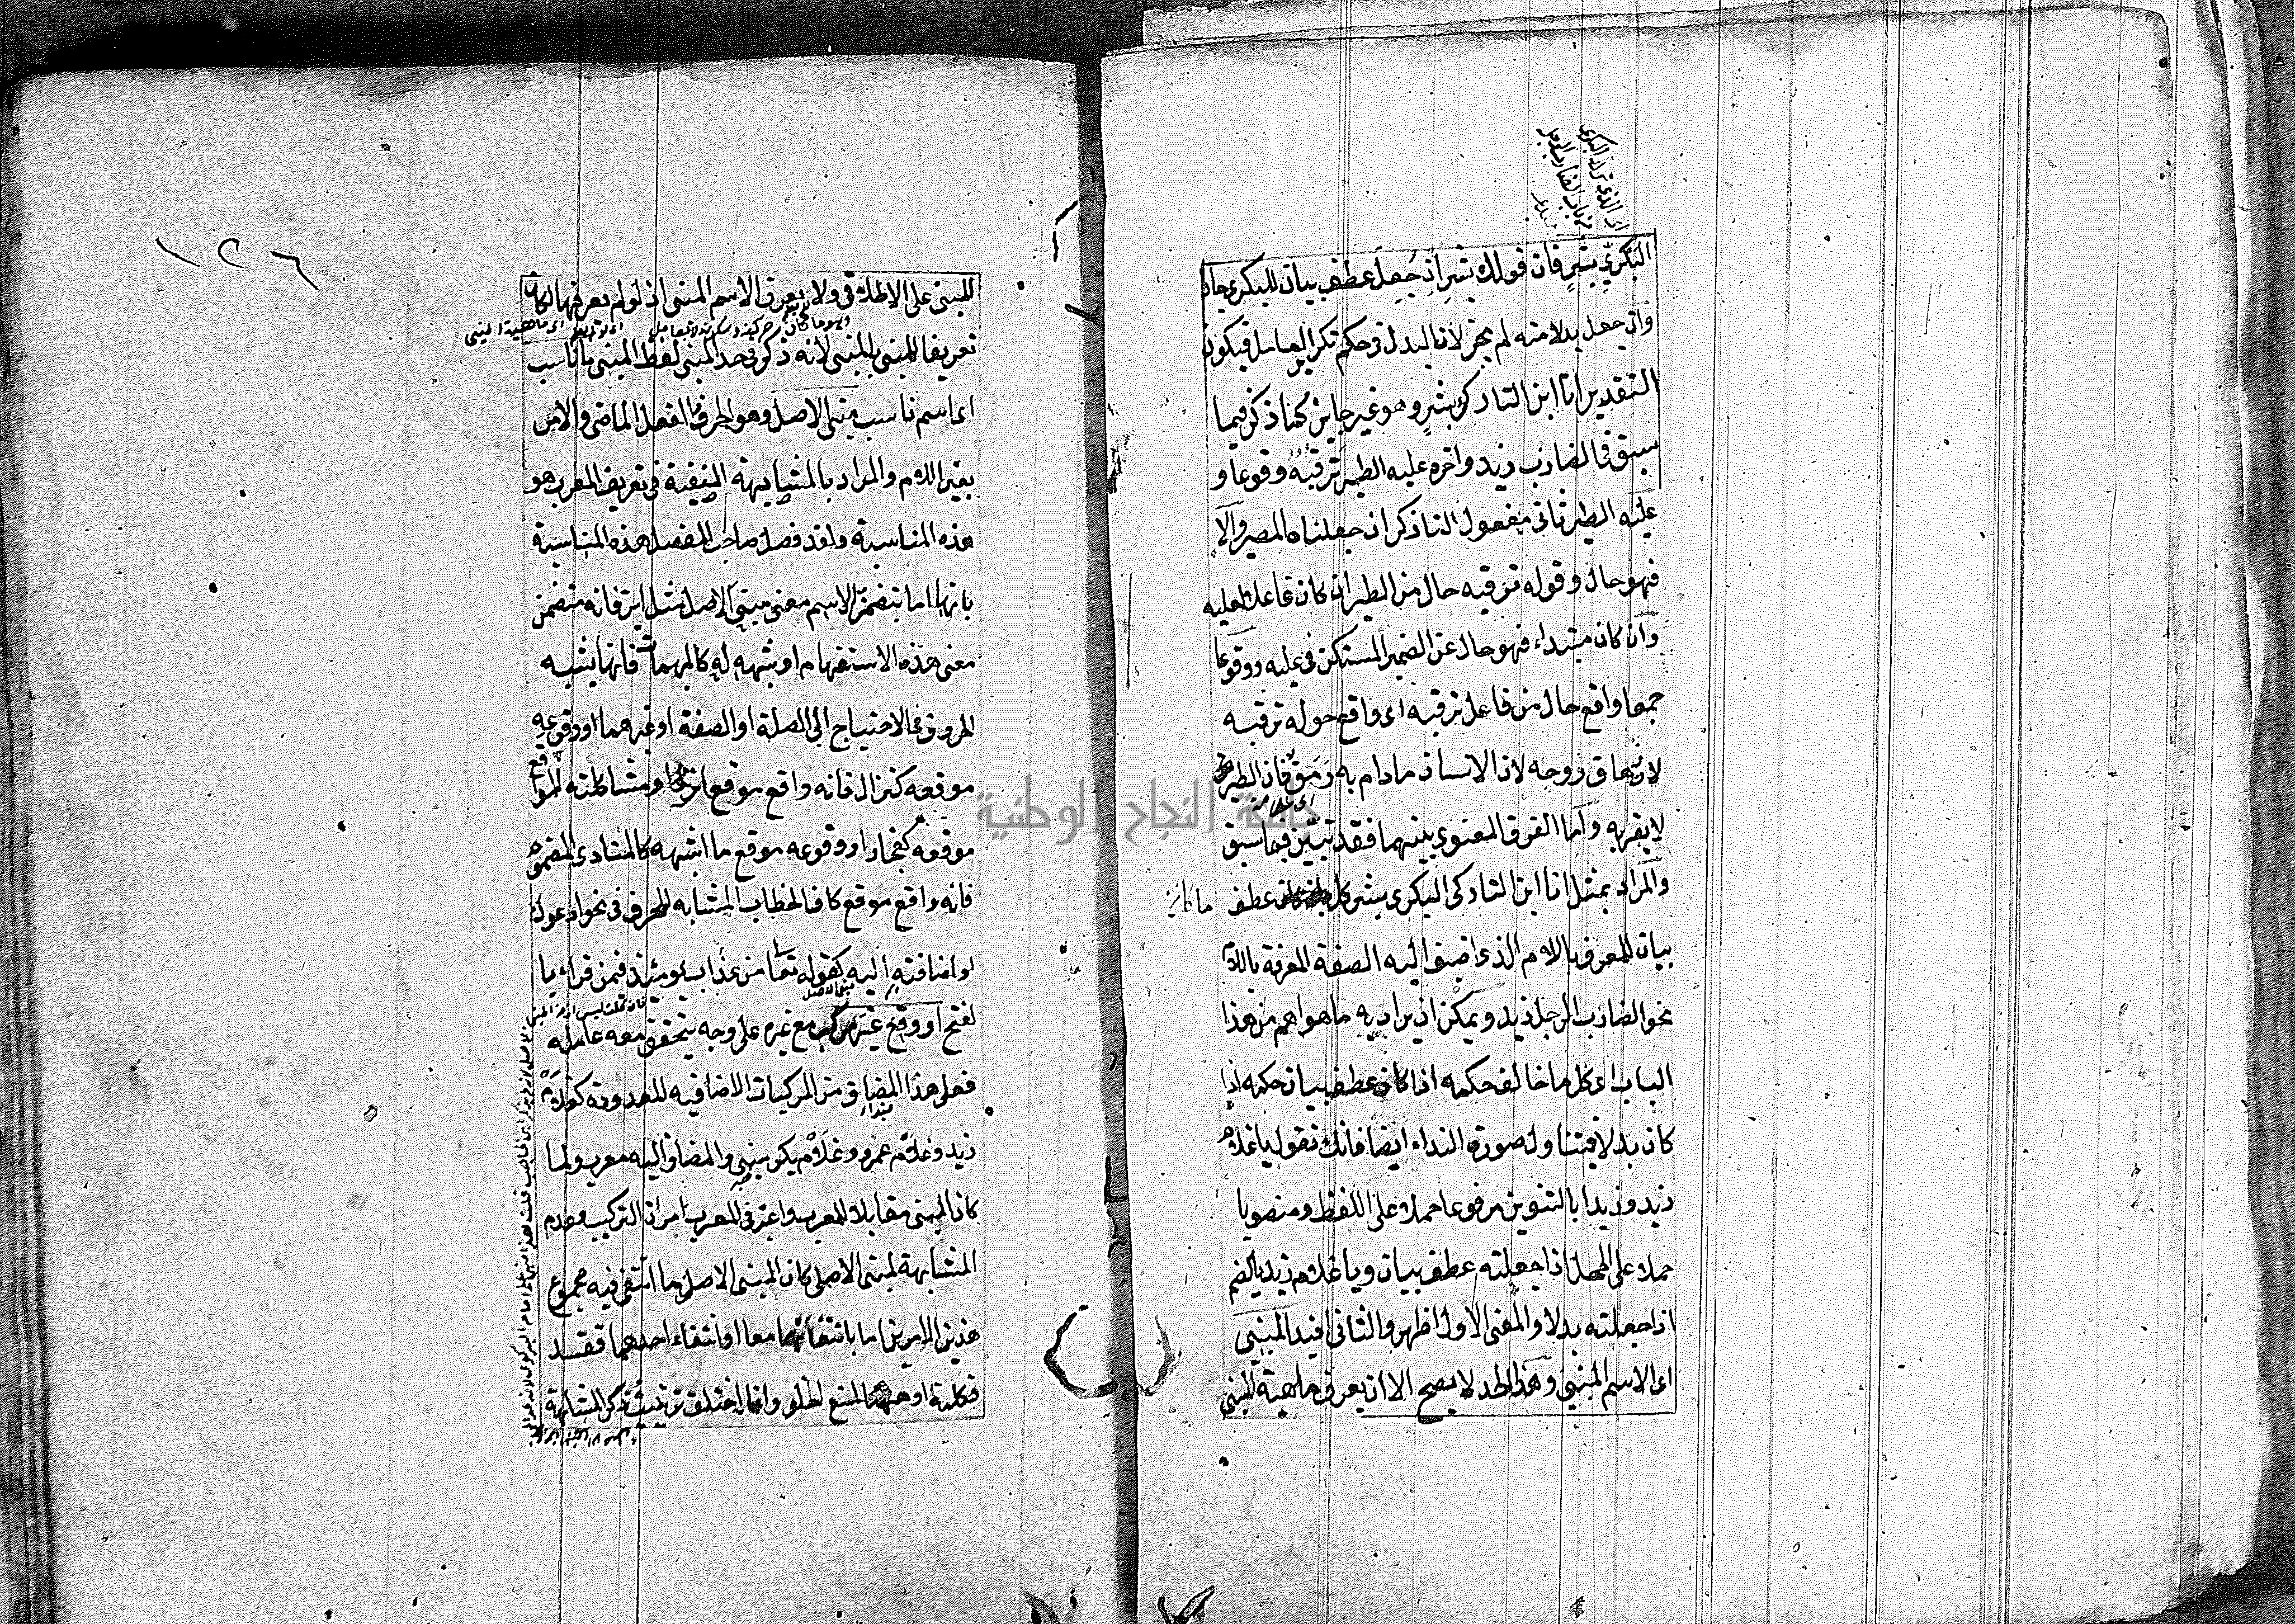 البكري بشر فان قولك بشر ان جعل عطف بيان للبكري جاز
وان جعل بدلا منه لم يجز لان البدل في حكم تكرير العامل فيكون
التقدير انا ابن التارك بشر وهو غير جايز كما ذكر فيما
سبق في الضارب زيد واخره عليه الطير ترقبه وقوعا و
عليه الطير ثاني مفعولي التارك ان جعلناه المصير والا
فهو حال وقوله ترقبه حال من الطير ان كان فاعلا لعليه
وان كان مبتداء فهو حال عن الضمير المستكن في عليه ووقوعا
جمع واقع حال من فاعل ترقبه اى واقع حوله ترقبه
لانزهاق روحه لان الانسان مادام به رمق فان الطير
لا يقربه واما الفرق المعنوي بينهما فقد تبين فيما سبق
والمراد بمثل انا ابن التارك البكري بشر كل ما كان عطف
بيان للمعرف باللام الذى اضيف اليه الصفة المعرفة باللام
نحو الضارب الرجل زيد ويمكن ان يراد به ما هو اعم من هذا
الباب اى كل ما خالف حكمه اذا كان عطف بيان حكمه اذا
كان بدلا فيتناول صورة النداء ايضا فانك تقول يا غلام
زيد وزيدا بالتنوين مرفوعا حملا على اللفظ ومنصوبا
حملا على المحل اذا جعلته عطف بيان ويا غلام زيد بالضم
اذا جعلته بدلا والمعنى الاول اظهر والثاني افيد المبني
اى الاسم المبني وهذا الحد لا يصح الا ان يعرف ماهية المبني
١٢٦
للمبني على الاطلاق ولا يعرف الاسم المبني اذ لو لم يعرفها لكان
تعريفا للمبني بالمبني لانه ذكر في حد المبني لفظ المبني ما ناسب
اى اسم ناسب مبني الاصل وهو الحرف والفعل الماضى والامر
بغير اللام والمراد بالمشابهة المنفية في تعريف المعرب هو
هذه المناسبة ولقد فصل صاحب المفصل هذه المناسبة
بانها اما بتضمن الاسم معنى مبني الاصل مثل اين فانه متضمن
معنى همزة الاستفهام او شبهه له كالمبهمات فانها يشبه
الحروف في الاحتياج الى الصلة او الصفة او غيرهما او وقوعه
موقعه كنزال فانه واقع موقع انزل او مشاكلته للواقع
موقعه كفجار او وقوعه موقع ما اشبهه كالمنادى المضموم
فانه واقع موقع كاف الخطاب المشابه للحرف في نحو ادعوك
او اضافته اليه كقوله تعالى من عذاب يومئذ فمن قراء با
لفتح او وقع غير مركب مع غيره على وجه يتحقق معه عامله
فعلى هذا المضاف من المركبات الاضافيه المعدودة كغلام
زيد وغلام عمرو وغلام بكر مبني والمضاف اليه معرب ولما
كان المبني مقابلا للمعرب واعتبر في المعرب امران التركيب وعدم
المشابهة لمبني الاصل كان المبني الاصل ما انتفى فيه مجموع
هذين الامرين اما بانتفائهما معا او انتفاء احدهما فقط
فكلمة او ههنا لمنع الخلو وانما اختلف ترتيب ذكر المشابهة
جامعة النجاح الوطنية